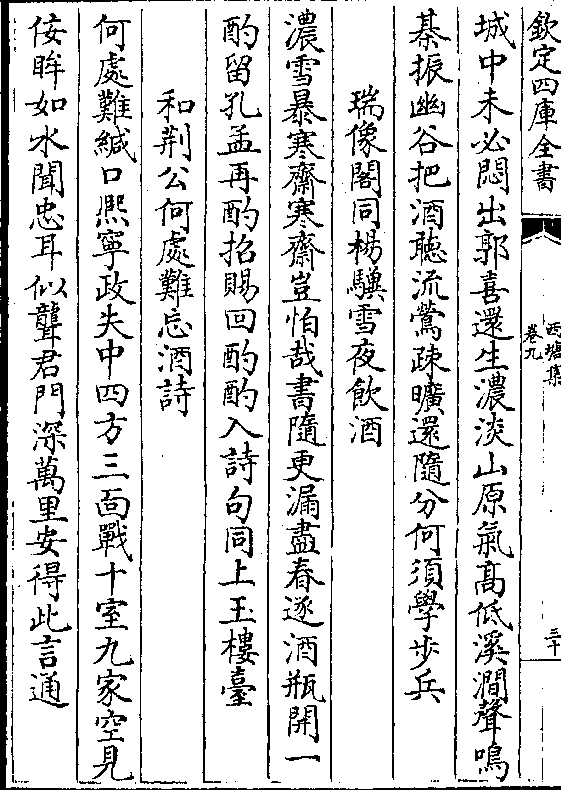 欽定四庫全書
西塘集
卷九
三十
城中未必悶出郭喜還生濃淡山原氣髙低溪澗聲鳴
棊振幽谷把酒聴流鶯疎曠還隨分何須學歩兵
瑞像閣同楊驥雪夜飲酒
濃雪暴寒齋寒齋豈怕哉書隨更漏盡春逐酒瓶開一
酌留孔孟再酌招賜回酌酌入詩句同上玉樓臺
和荆公何處難忘酒詩
何處難緘口熙寧政失中四方三面戰十室九家空見
佞眸如水聞忠耳似聾君門深萬里安得此言通